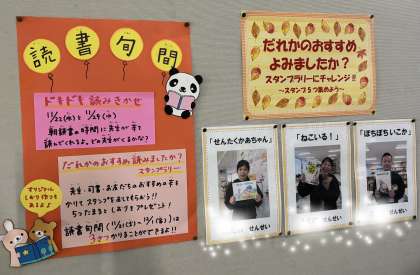 読書旬間
ドキドキ読みきかせ
11/22(水)と11/29(水)
朝読書の時間に先生が本を
読んでくれるよ。どの先生がくるかな？
だれかのおすすめ読みましたか？
スタンプラリー
先生・司書・お友だちのおすすめの本を
かりてスタンプを集めてもらおう!!
5つたまると しおりをプレゼント!
読書旬間(11/21(火)～12/1(金))は
3さつかりることができるよ!!
すてきな本
あるよ
だれかのおすすめ
よみましたか？
スタンプラリーにチャレンジ!!
～スタンプ5つ集めよう～
「せんたくかあちゃん」
せんせい
「ねこいる！」
せんせい
「ぼちぼちいこか」
せんせい